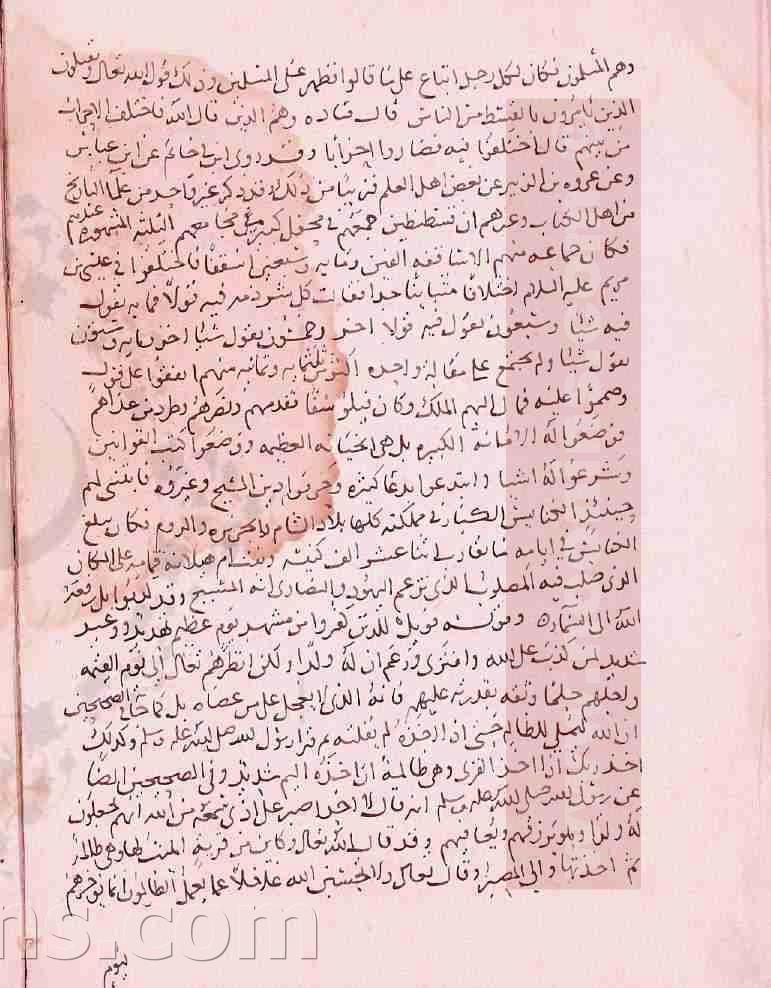 وهم المسلمون فكان لكل رجل اتباع على ما قالوا فظهر على المسلمين وذلك قول الله تعالى ويقتلون
الذين يامرون بالقسط من الناس قال قتاده وهم الذين قال الله فاختلف الاحزاب
من بينهم قال اختلفوا فيه فصاروا احزابا وقد روى ابن ابي حاتم عن ابن عباس
وعن عروه بن الزبير عن بعض اهل العلم قريبا من ذلك وقد ذكر غير واحد من علما التاريخ
من اهل الكتاب وغيرهم ان قسطنطين جمعهم في محفل كبير من مجامعهم الثلثه المشهوره عندهم
فكان جماعه منهم الاساقفه الفين ومايه وسبعين اسقفا فاختلفوا في عيسى بن
مريم عليه السلام اختلافا متباينا جدا فقالت كل شرذمه فيه قولا فمايه تقول
فيه شيا وسبعون تقول فيه قولا اخر وخمسون تقول شيا اخر ومايه وستون
تقول شيا ولم يجتمع على مقالة واحده اكثر من ثلثمايه وثمانيه منهم اتفقوا على قول
وصمموا عليه فمال اليهم الملك وكان فيلوسفا فقدمهم ونصرهم وطرد من عداهم
فوضعوا له الامانة الكبيره بل هي الخيانه العظيمه ووضعوا له كتب القوانين
وشرعوا له اشيا وابتدعوا بدعا كثيره وحرفوا دين المسيح وغيروه فابتنى لهم
حينئذ الكنايس الكبار في مملكته كلها بلاد الشام والجزيره والروم فكان مبلغ
الكنايس في ايامه ما يقارب اثنا عشر الف كنيسه وبنت ام هيلانه قمامه على المكان
الذي صلب فيه المصلوب الذي تزعم اليهود والنصارى انه المسيح وقد كذبوا بل رفعه
الله الى السماء وقوله فويل للذين كفروا من مشهد يوم عظيم تهديد ووعيد
شديد لمن كذب على الله وافترى وزعم ان له ولدا ولكن انظرهم تعالى الى يوم القيمه
واجلهم حلما وثقه بقدرته عليهم فانه الذي لا يعجل على من عصاه بل كما جا في الصحيحين
ان الله ليملي للظالم حتى اذا اخذه لم يفلته ثم قرا رسول الله صلى الله عليه وسلم وكذلك
اخذ ربك اذا اخذ القرى وهي ظالمة ان اخذه اليم شديد وفي الصحيحين ايضا
عن رسول الله صلى الله عليه وسلم انه قال لا احد اصبر على اذى سمعه من الله انهم يجعلون
له ولدا وهو يرزقهم ويعافيهم وقد قال الله تعالى وكاين من قرية امليت لها وهي ظالمة
ثم اخذتها والي المصير وقال تعالى ولا تحسبن الله غافلا عما يعمل الظالمون انما يوخرهم
ليوم
ns.com